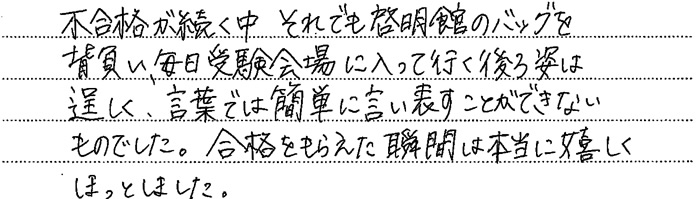 不合格が続く中 それでも啓明館のバッグを
背負い、毎日受験会場に入って行く後ろ姿は
逞しく、言葉では簡単に言い表すことができない
ものでした。合格をもらえた瞬間は本当に嬉しく
ほっとしました。